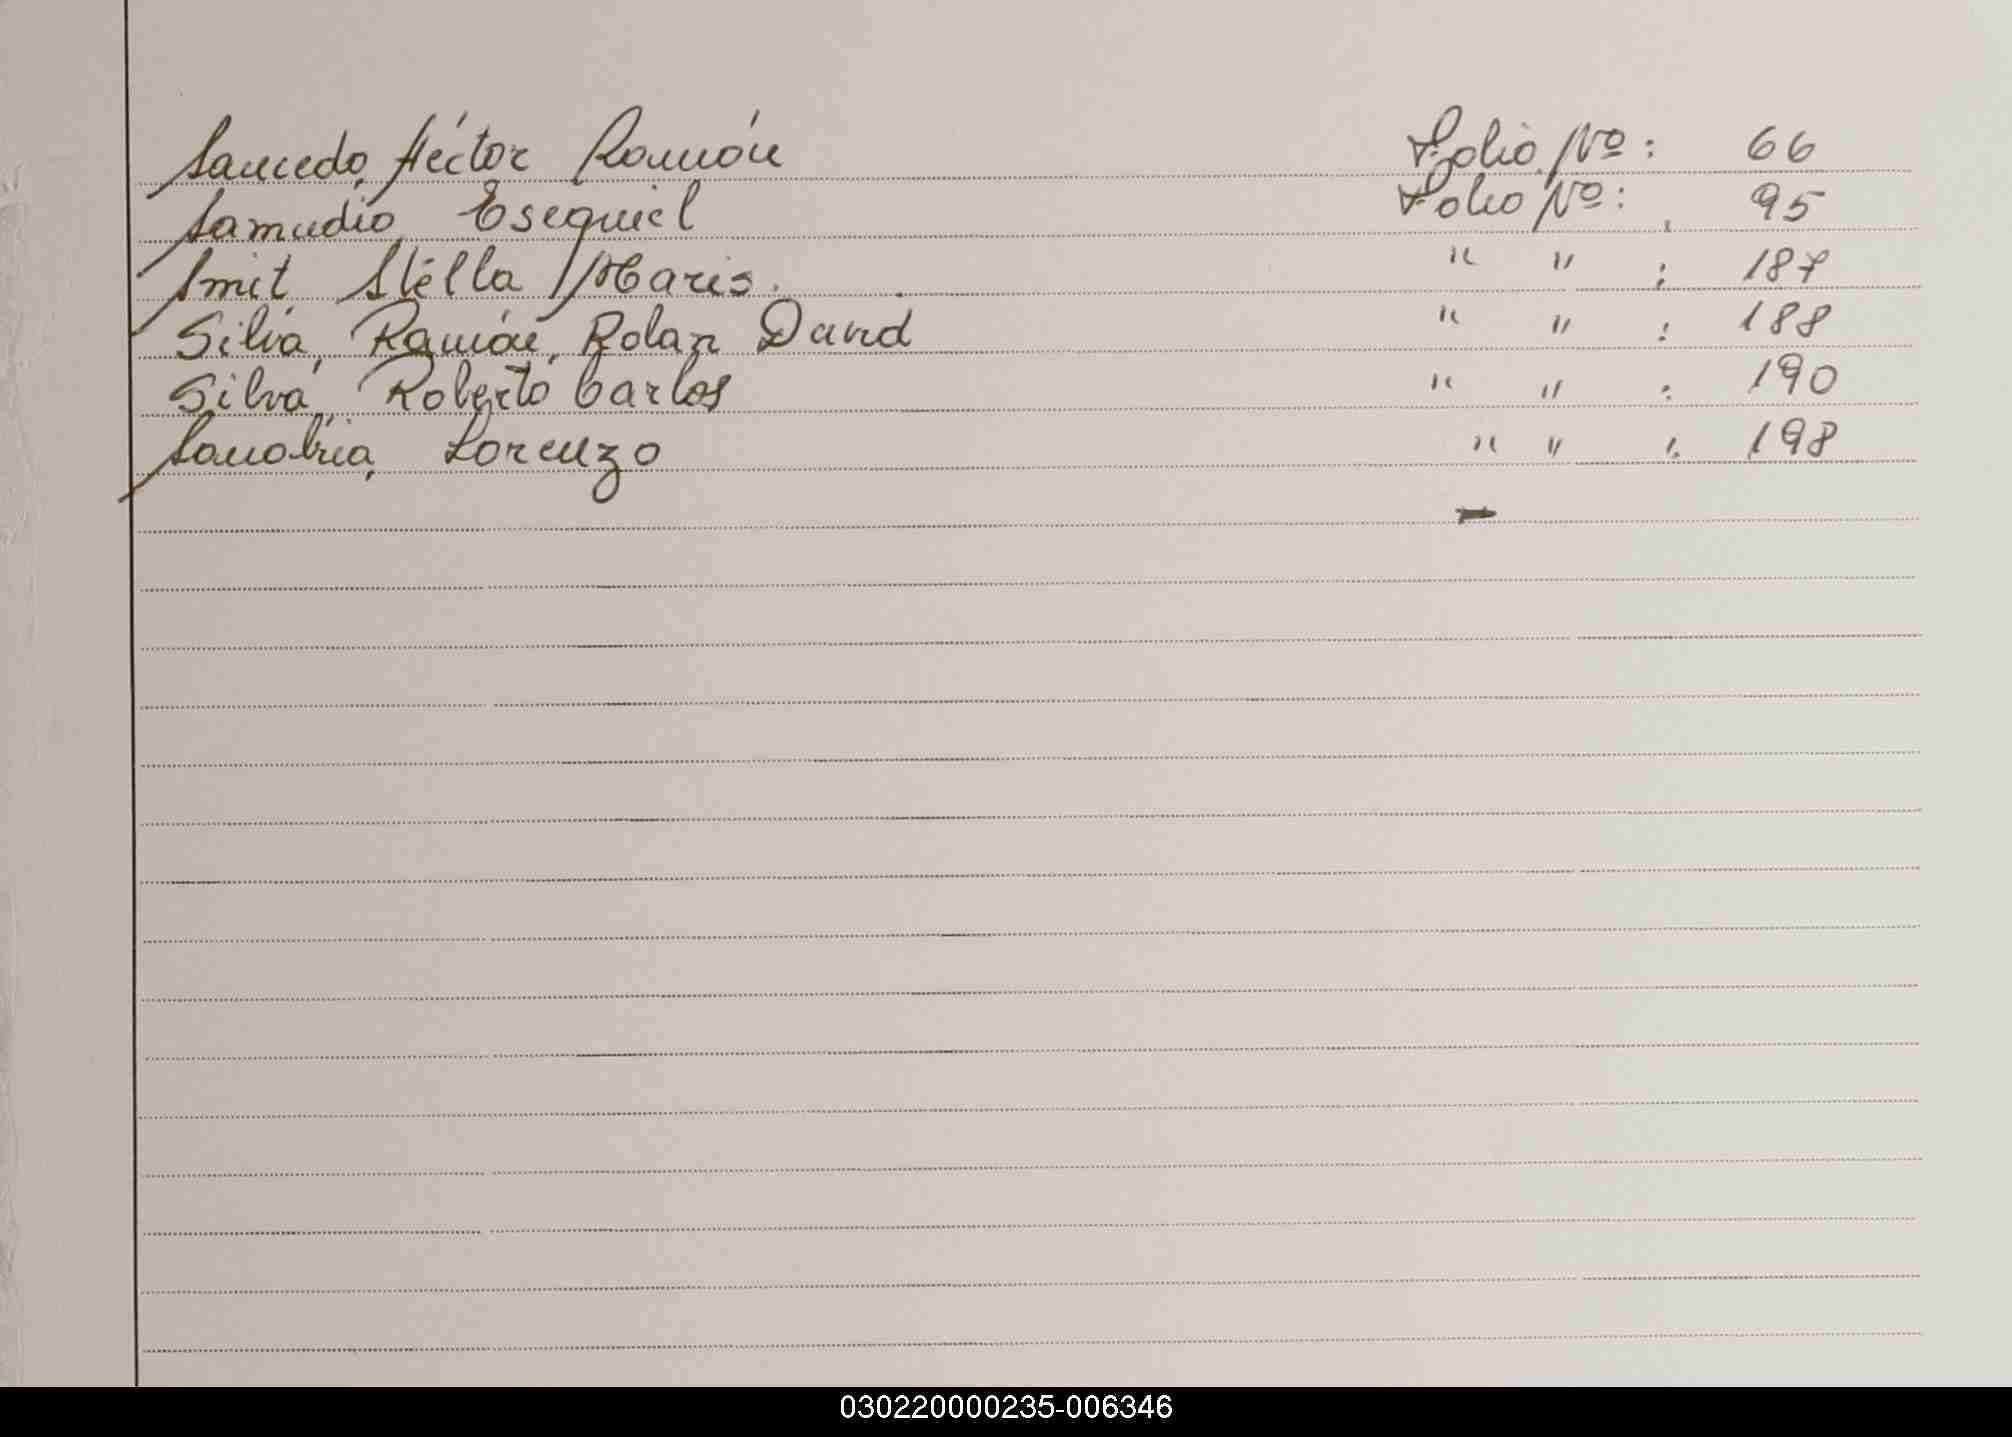 Saucedo, Héctor Ramón Folio Nº: 66
Samudio, Esequiel Folio Nº: 95
Smit Stella Maris. " " : 187
Silva, Ramón, Rolan David " " : 188
Silva, Roberto Carlos " " : 190
Sanabria, Lorenzo " " : 198
030220000235-006346